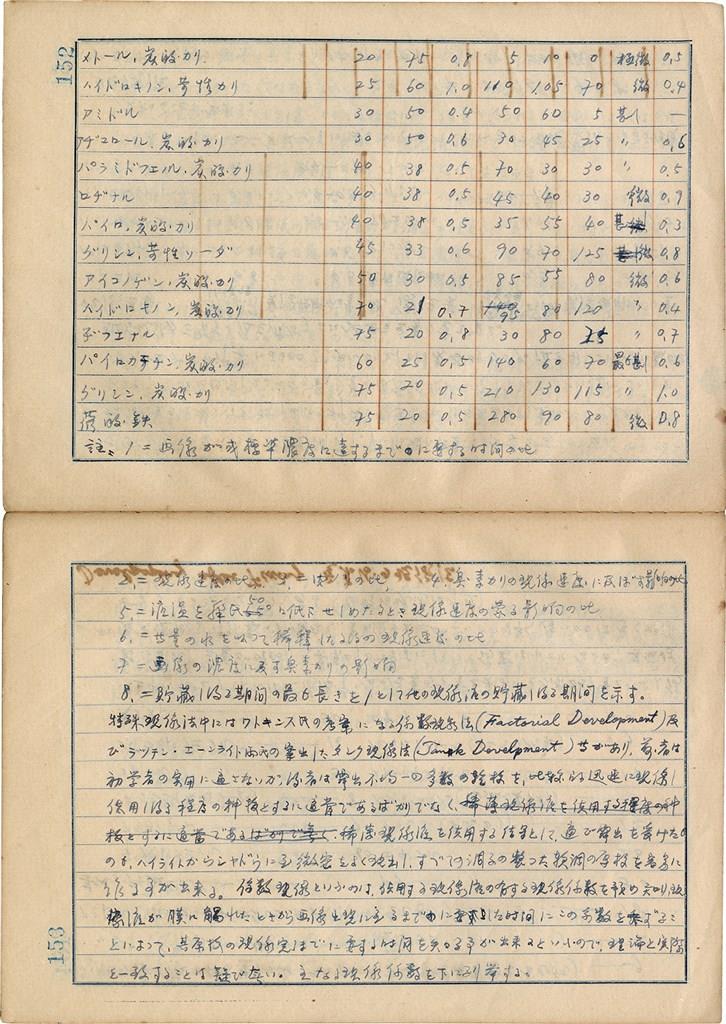 152
メトール、炭酸カリ 20 75 0.8 5 10 0 極微 0.5
ハイドロキノン、苛性カリ 25 60 1.0 110 105 70 微 0.4
アミドル 30 50 0.4 50 60 5 甚 —
アヂユロール、炭酸カリ 30 50 0.6 30 45 25 〃 0.6
パラミドフェノル、炭酸カリ 40 38 0.5 70 30 30 〃 0.5
ロヂナル 40 38 0.5 45 40 30 微
パイロ、炭酸カリ 40 38 0.5 35 55 40 甚 0.3
グリシン、苛性ソーダ 45 33 0.6 90 70 125 微 0.8
アイコノゲン、炭酸カリ 50 30 0.5 85 55 80 微 0.6
ハイドロキノン、炭酸カリ 70 21 0.7 95 80 120 〃 0.4
ヂフエナル 75 20 0.8 30 80 〃 0.7
パイロカテチン、炭酸カリ 60 25 0.5 140 60 70 最モ甚 0.6
グリシン、炭酸カリ 75 20 0.5 210 130 115 〃 1.0
蓚酸鉄 75 20 0.5 280 90 80 微 0.8
註、1=画像が或標準濃度に達するまでに要する時間の比
2.=現像速度の比 4.臭素カリの現像速度に及ぼす影響の比
5.=液温を華氏50°に低下せしめたるとき現像速度の蒙る影響の比
6.=水を以つて稀釈したる際の現像速度の比
7=画像の濃度に及す臭素カリの影響
8.=貯蔵し得る期間の最も長きを1として他の現像液の貯蔵し得る期間を示す。
特殊現像法中にはワトキンス氏の考案になる係数現像法(Factorial Development)及
びラッテン・エーンライト両氏の案出したタンク現像法(Tank Develpment)等があり、前者は
初学者の実用に適さないが後者は露出不均一の多数の乾板を、比較的迅速に現像し
使用し得る程度の種板とするに適当であるばかりでなく、稀薄現像液を使用する程度の種
板とするに適当であるばかりで無く、稀薄現像液を使用する結果として、適度露出を受けたも
のも、ハイライトからシャドウに至る微密をよく現出し、すべての調子の整つた軟調の原板を容易に
作る事が出来る。係数現像といふのは、使用する現像液の有する現像係数を予め知り、現
像液が膜に触れたときから画像出現に至るまでに要した時間にこの系数を乗ずるこ
とによつて、其原板の現像完了までに要する時間を知る事が出来るといふので、理論と実際
と一致することは無い。主なる現像係数を下に列挙する。
153